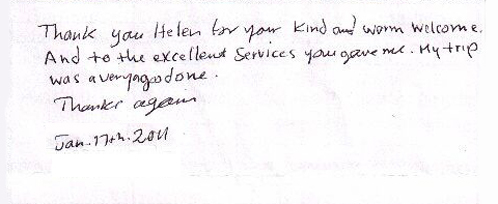 Thank you Helen for your kind and warm welcome.
And to the excellent Services you gave me. My trip
was a very good one.
Thanks again
Jan. 17th. 2011